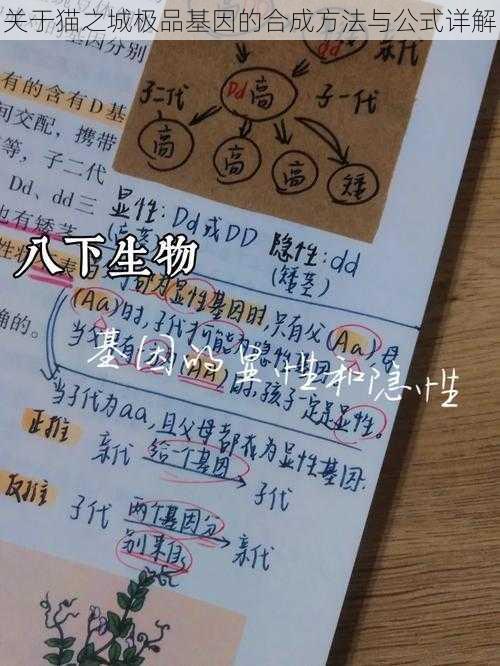 关于猫之城极品基因的合成方法与公式详解
的基因分别
亲代
有的含有D基
Dd高
子二代
子一代
间交配，携带
高
高
高
矮
等，子二代
Dd、dd三
显性：Dd或DD
隐性：dd
也有矮茎
(高茎)
(矮茎)
八下生物
性状
表
为显性基因时，只有父(Aa)母
确的。
(Aa)时，子代才可能为隐性
基因的显性和隐性
当父
有
(AA)时，孩子一定是显性。
当子代为aa，且父母都我为显性基因.
正推
亲代
给一个基因
子代
反推
子代
两个基因分
别来自
亲代